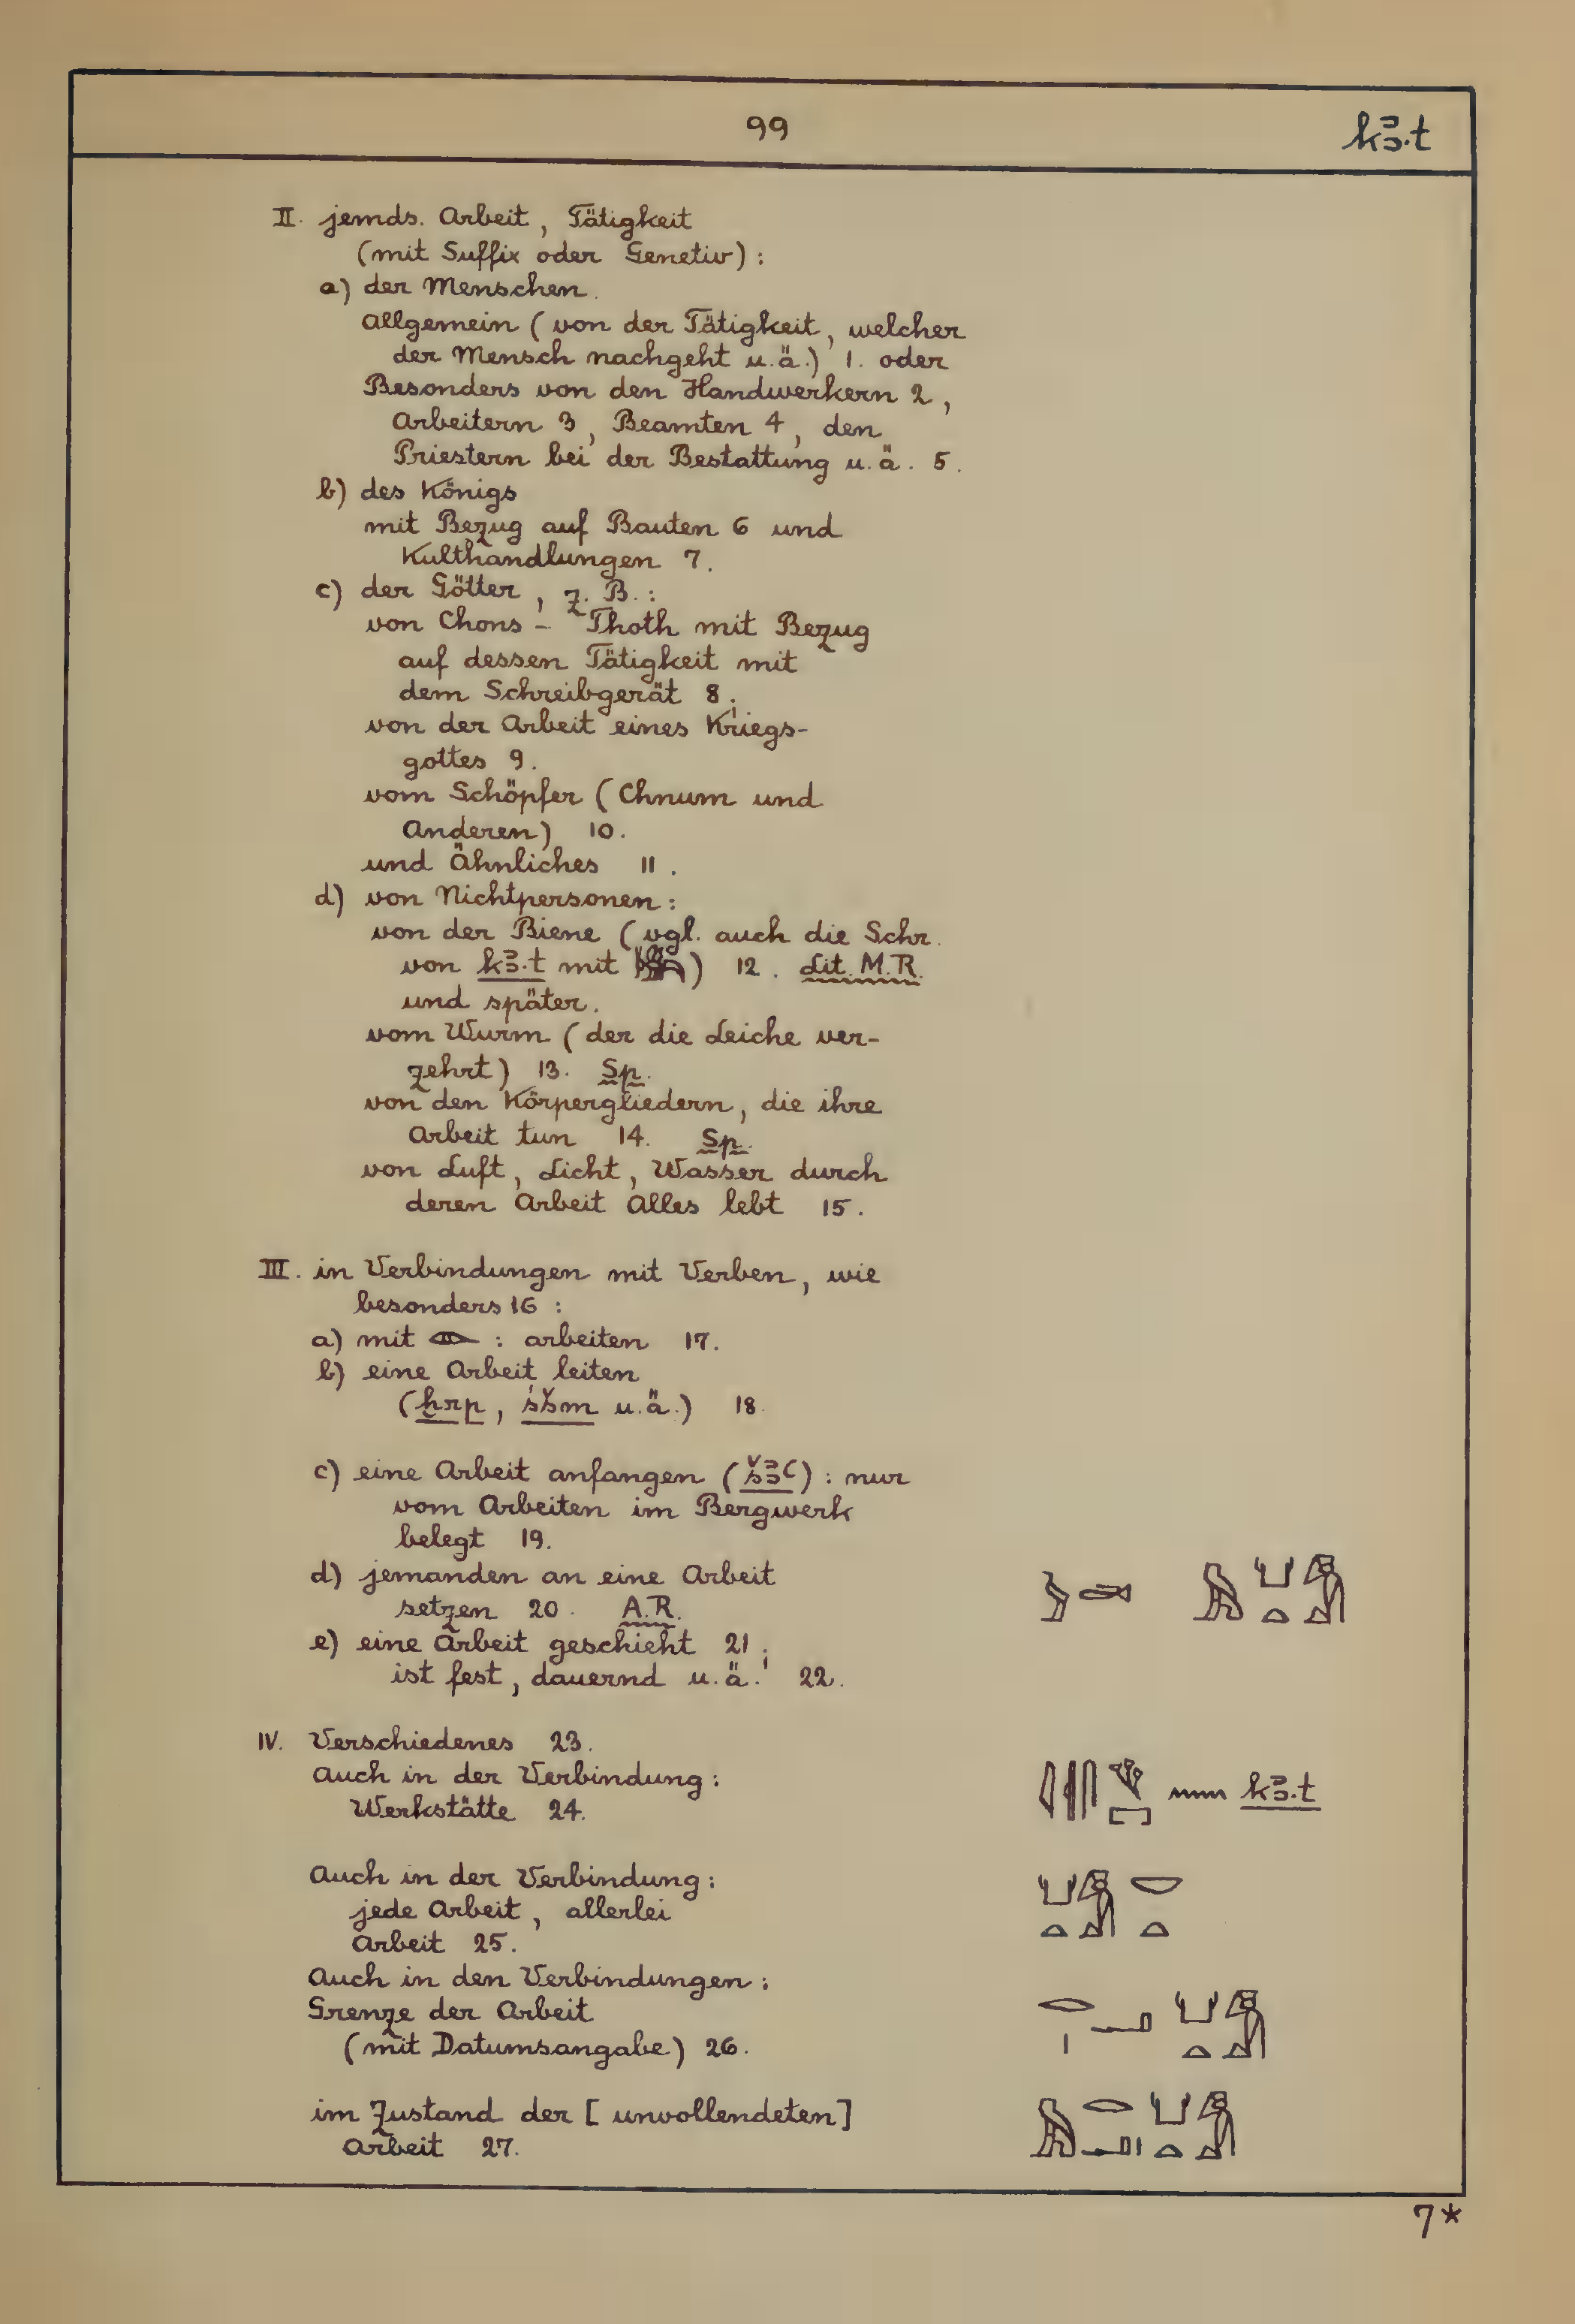 99
kꜣ.t
II. jemds. Arbeit, Tätigkeit
(mit Suffix oder Genetiv):
a) der Menschen.
Allgemein (von der Tätigkeit, welcher
der Mensch nachgeht u.ä.) 1. oder
Besonders von den Handwerkern 2,
Arbeitern 3, Beamten 4, den
Priestern bei der Bestattung u.ä. 5.
b) des Königs
mit Bezug auf Bauten 6 und
Kulthandlungen 7.
c) der Götter, z.B.:
von Chons-Thoth mit Bezug
auf dessen Tätigkeit mit
dem Schreibgerät 8;
von der Arbeit eines Kriegs-
gottes 9.
vom Schöpfer (Chnum und
Anderen) 10.
und Ähnliches 11.
d) von Nichtpersonen:
von der Biene (vgl. auch die Schr.
von kꜣ.t mit 𓆤) 12. Lit. M.R.
und später.
vom Wurm (der die Leiche ver-
zehrt) 13. Sp.
von den Körpergliedern, die ihre
Arbeit tun 14. Sp.
von Luft, Licht, Wasser durch
deren Arbeit Alles lebt 15.
III. in Verbindungen mit Verben, wie
besonders 16:
a) mit 𓁹 : arbeiten 17.
b) eine Arbeit leiten
(ḫrp, śšm u.ä.) 18.
c) eine Arbeit anfangen (šꜣꜥ): nur
vom Arbeiten im Bergwerk
belegt 19.
d) jemanden an eine Arbeit
setzen 20. A.R.
e) eine Arbeit geschieht 21;
ist fest, dauernd u.ä. 22.
IV. Verschiedenes 23.
Auch in der Verbindung:
Werkstätte 24. 𓈖 kꜣ.t
Auch in der Verbindung:
jede Arbeit, allerlei
Arbeit 25. 𓂓𓏏𓀋𓎟𓏏
Auch in den Verbindungen:
Grenze der Arbeit
(mit Datumsangabe) 26. 𓂋𓏤𓂝𓂓𓏏𓀋
im Zustand der [unvollendeten]
Arbeit 27. 𓅓𓂋𓂝𓏤𓂓𓏏𓀋
7*